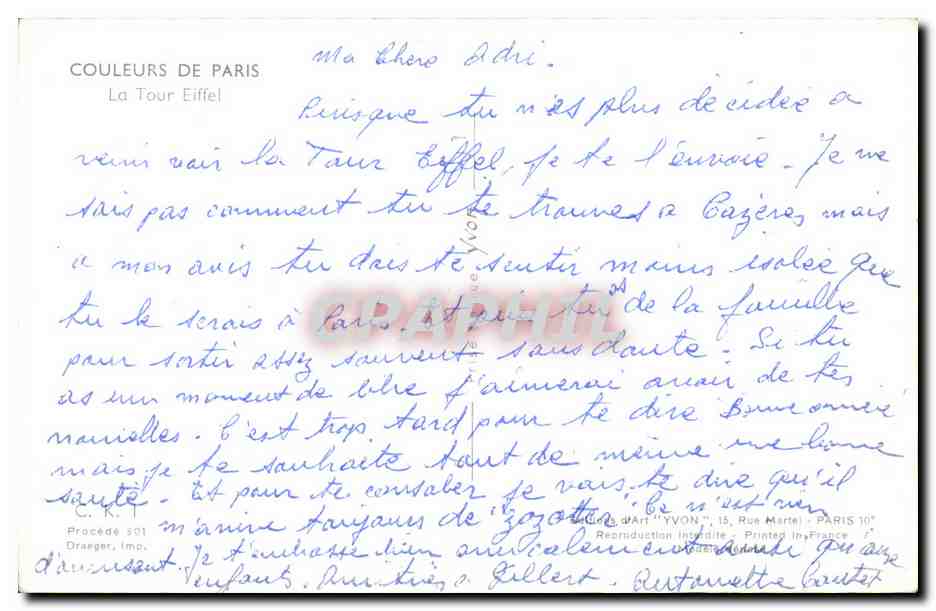 COULEURS DE PARIS
La Tour Eiffel
Ma Chère Adri.
Puisque tu n'es plus décidée a
venir voir la Tour Eiffel, je te l'envoie. Je ne
sais pas comment tu te trouves a Cazères, mais
a mon avis tu dois te sentir moins isolée que
tu le serais à Paris. Et puis tu as de la famille
pour sortir assez souvent sans doute. Si tu
as un moment de libre j'aimerai avoir de tes
nouvelles. C'est trop tard pour te dire Bonne année
mais je te souhaite tout de même une bonne
santé. Et pour te consoler je vais te dire qu'il
m'arrive toujours de "zozotter". Ce n'est rien
d'amusant. Je t'embrasse bien amicalement ainsi qu'aux
enfants. Amitiés a Gilbert. Antoinette
C. K. T.
Procédé 301
Draeger, Imp.
Editions d'Art "YVON", 15, Rue Martel - PARIS 10e
Reproduction Interdite - Printed in France
YVON
CPAPHIL